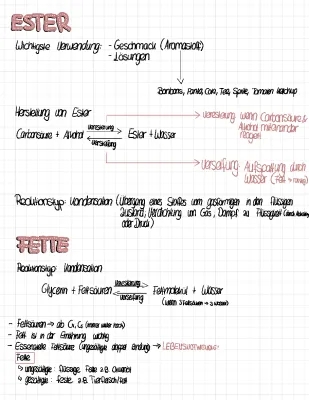 ESTER
Wichtigste Verwendung: - Geschmack (Aromastoff)
- Lösungen
Bonbons, Fanta, Cola, Tee, Seife, Tomaten Ketchup
Herstellung von Ester
Carbonsäure + Alkohol Veresterung Verseifung Ester + Wasser
Veresterung wenn Carbonsäure & Alkohol miteinander reagiert
Verseifung: Aufspaltung durch Wasser (Fett →
Reaktionstyp: Kondensation (Übergang eines Stoffes vom gasförmigen in den flüssigen
Zustand, Verdichtung von Gas, Dampf zu Flüssigkeit (durch Abkühlung
oder Druck)
FETTE
Reaktionstyp: Kondensation
Glycerin + Fettsäuren Veresterung Verseifung Fettmolekül + Wasser
(wenn 3 Fettsäuren → 3 Wasser)
- Fettsäuren → ab C4, C6
- Fett ist in der Ernährung wichtig
- Essenzielle Fettsäure (ungesättigte doppel Bindung) → LEBENSNOTWENDIG
Fette
↳ ungesättigte: flüssige Fette z.B. Olivenöl
↳ gesättigte: feste z.B. Tierfleisch/Fett